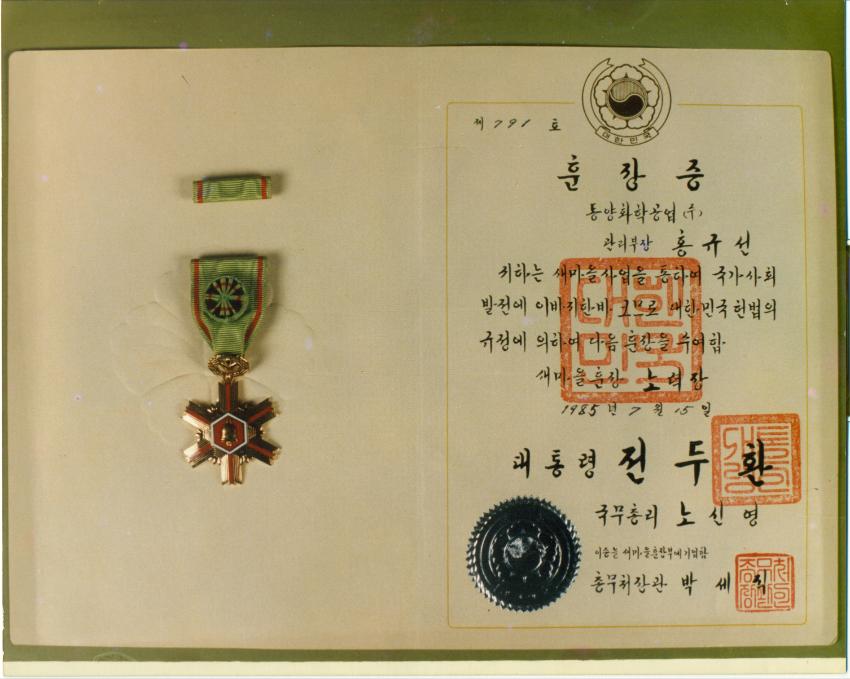 대한민국
제 791 호
훈장증
동양화학공업(주)
관리부장 홍규선
귀하는 새마을사업을 통하여 국가사회
발전에 이바지한바 크므로 대한민국헌법의
규정에 의하여 다음 훈장을 수여함
새마을훈장 노력장
1985년 7월 15일
대통령 전두환
국무총리 노신영
이증을 새마을훈장부에 기입함
총무처장관 박세직